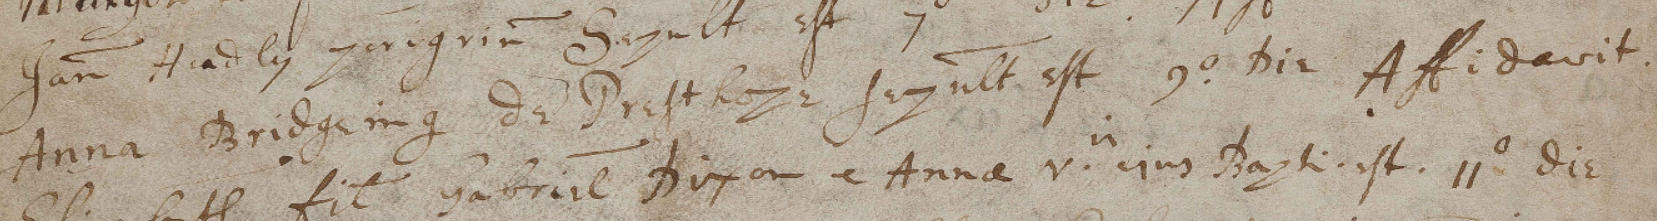 Jan Headly perigrin Sepult est 7º die
Anna Bridgeing de Presthope sepult est 9º die Affidavit.
Elizabeth fil Gabriel Dixon e Annæ v. ejus Bapti. est. 11º die